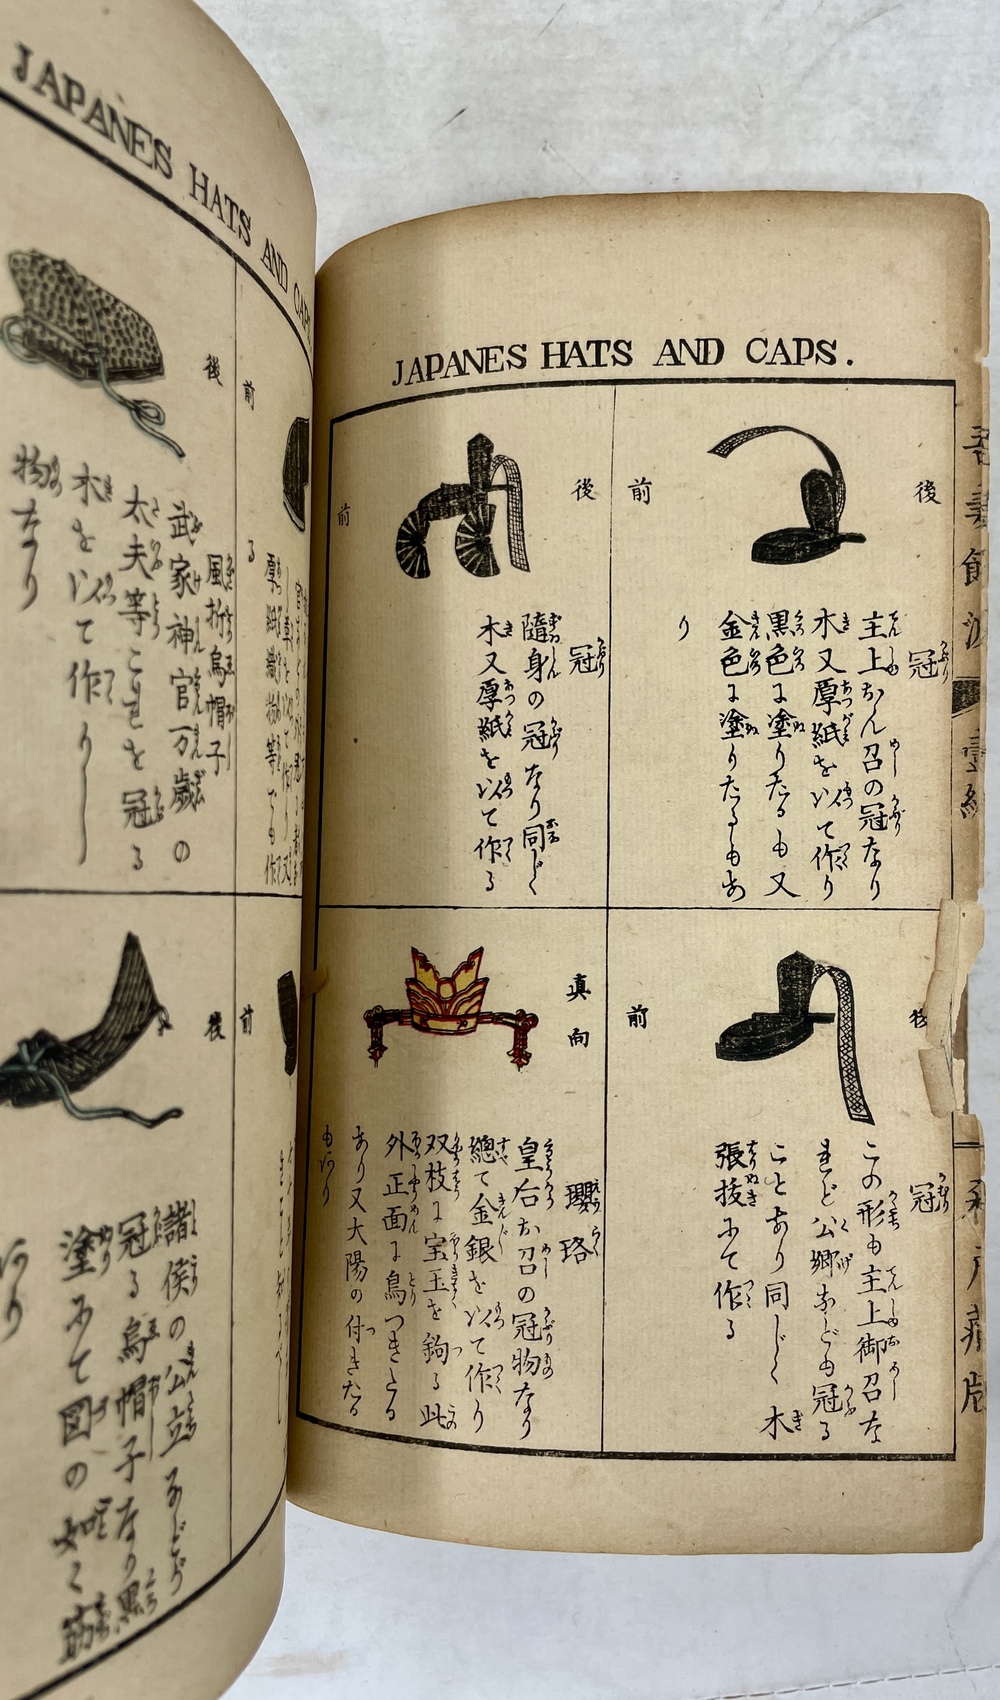 JAPANES HATS AND CAPS.
後
前
冠
主上おん召の冠なり
木又厚紙を以て作り
黒色に塗りたるも又
金色に塗りたるもあ
り
後
前
冠
隨身の冠なり同じく
木又厚紙を以て作る
後
前
冠
この形も主上御召な
れど公卿なども冠る
ことあり同じく木
張抜にて作る
真向
瓔珞
皇后お召の冠物なり
總て金銀を以て作り
双枝に宝玉を鉤る此
外正面に鳥つきたる
あり又大陽の付きたる
もあり
JAPANES HATS AND CAPS
前
後
風折烏帽子
武家神官万歳の
太夫等これを冠る
木を以て作りし
物なり
前
後
諸侯の公達などが
冠る烏帽子なり黒
塗にて図の如く